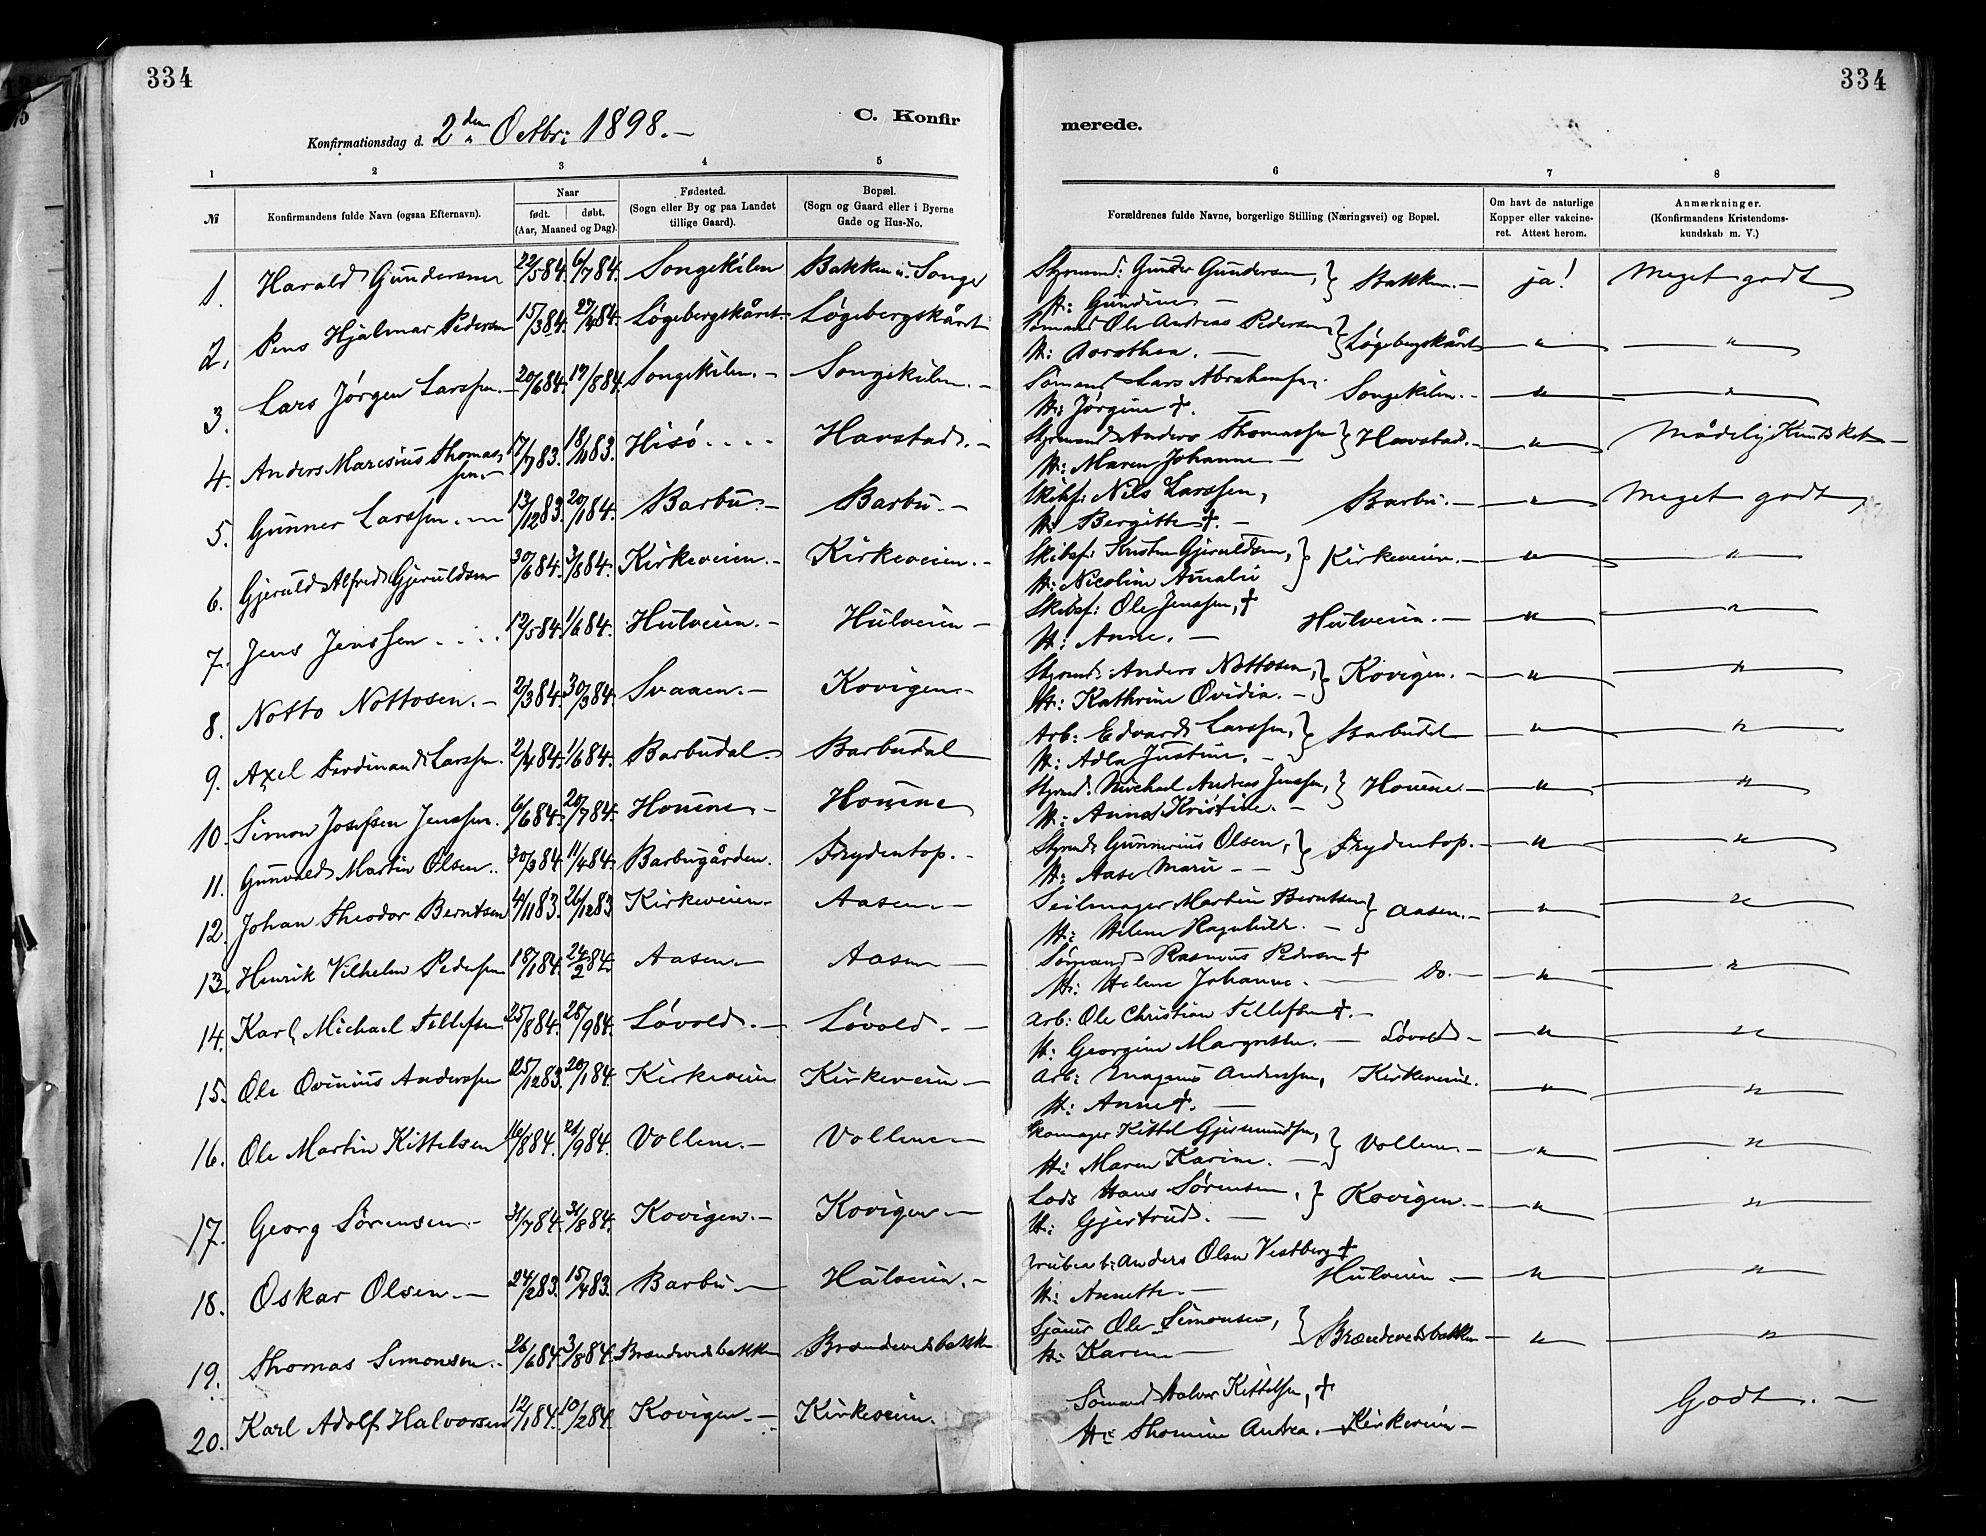 334
334
Konfirmationsdag d. 2den Octbr: 1898.—
C. Konfir
merede.
1 2 3 4 5 6 7 8
№ Konfirmandens fulde Navn (ogsaa Efternavn). Naar født. døbt. (Aar, Maaned og Dag). Fødested. (Sogn eller By og paa Landet tillige Gaard). Bopæl. (Sogn og Gaard eller i Byerne Gade og Hus-No. Forældrenes fulde Navne, borgerlige Stilling (Næringsvei) og Bopæl. Om havt de naturlige Kopper eller vakcineret. Attest herom. Anmærkninger. (Konfirmandens Kristendomskundskab m. V.)
1. Harald Gundersen 22/5 84. 6/7 84. Songekilen Bakken i Songe Styrmd: Gunder Gundersen, } Bakken.— ja! Meget godt
H: Gundine —
2. Jens Hjalmar Pedersen 15/3 84. 27/4 84. Løgebergskåret. Løgebergskåret Sømand Ole Andreas Pedersen } Løgebergskåret " "
H: Dorothea. —
3. Lars Jørgen Larssen.— 20/6 84. 17/8 84. Songekilen.— Songekilen.— Sømand Lars Abrahamsen. Songekilen.— " "
H: Jørgine †.
4. Anders Marcsius Thomassen.— 17/7 83. 18/11 83. Hisö.... Havstad.— Styrmand Anders Thomassen } Havstad.— " Mådelig Kundskab—
H: Maren Johanne —
5. Gunner Larssen.— 13/12 83. 20/1 84. Barbu.— Barbu.— Skibsf: Nils Larssen, Barbu.— " Meget godt
H: Bergitte †.—
6. Gjeruld Alfred Gjeruldsen 30/6 84. 3/8 84. Kirkeveien.— Kirkeveien.— Skibsf: Kristen Gjeruldsen, } Kirkeveien.— " "
H: Nicoline Amalie
7. Jens Jenssen.... 12/5 84. 1/6 84. Hulveien.— Hulveien— Skibsf: Ole Jenssen, † Hulveien.— " "
H: Anne.—
8. Notto Nottosen.— 2/3 84. 30/3 84. Svaaen.— Kovigen.— Styrmd: Anders Nottosen, } Kovigen.— " "
H: Kathrine Ovidia.—
9. Axel Ferdinand Larssen. 2/4 84. 1/6 84. Barbudal. Barbudal Arb: Edvard Larssen, } Barbudal " "
H: Adla Justine.—
10. Simon Josefsen Jenssen. 6/6 84. 20/7 84. Houene— Houene Styrmd. Michael Andreas Jenssen, } Houene.— " "
H: Anna Kristine.—
11. Gunvald Martin Olsen.. 30/3 84. 11/4 84. Barbugården. Frydentop.— Styrmd Gunnerius Olsen, } Frydentop.— " "
H: Aase Marie — —
12. Johan Theodor Berntsen 4/11 83. 26/12 83 Kirkeveien. Aasen.— Seilmager Martin Berntsen } Aasen.— " "
H: Helene Ragnhild. —
13. Henrik Vilhelm Pedersen 18/1 84. 24/2 84. Aasen.— Aasen — Sømand Rasmus Pedersen † Do.— " "
H: Helene Johanne.
14. Karl Michael Tellefsen 25/8 84. 28/9 84. Løvold.— Løvold.— Arb: Ole Christian Tellefsen †.— Løvold— " "
H: Georgine Margrethe.—
15. Ole Ovinius Anderssen 25/12 83. 20/1 84. Kirkeveien Kirkeveien— Arb: Magnus Anderssen, Kirkeveien. " "
H: Anne †.
16. Ole Martin Kittelsen 16/8 84. 21/9 84. Vollene.— Vollene— Skomager Kittel Gjermundsen, } Vollene— " "
H: Maren Karine.
17. Georg Sörensen.— 31/7 84. 31/8 84. Kovigen.— Kovigen.— Lods Hans Sörensen, } Kovigen.— " "
H: Gjertrud.
18. Oskar Olsen.— 24/2 83. 15/4 83. Barbu.— Hulveien.— Anders Olsen Vestberg † Hulveien— " "
H: Annette.—
19. Thomas Simonsen.— 26/6 84. 3/8 84. Brændevedsbakken Brændevedsbakken Ole Simonsen, } Brændevedsbakken— " "
H: Karen—
20. Karl Adolf Halvorsen 12/1 84. 10/2 84. Kovigen.— Kirkeveien. Sömand Halvor Kittelsen, † Godt.—
H: Thomine Andrea.— Kirkeveien—